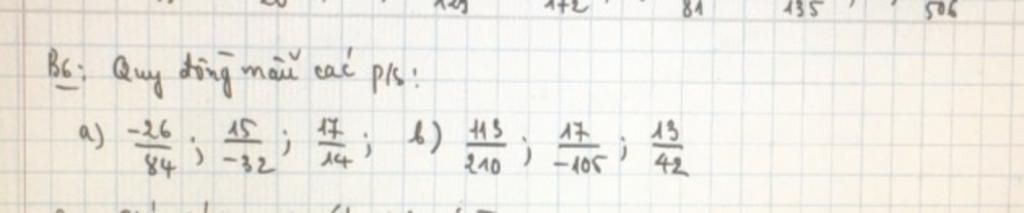 129 172 81 135 506
B6: Quy đồng mẫu các p/s:
a) -26/84 ; 15/-32 ; 17/14 ; b) 113/210 ; 17/-105 ; 13/42